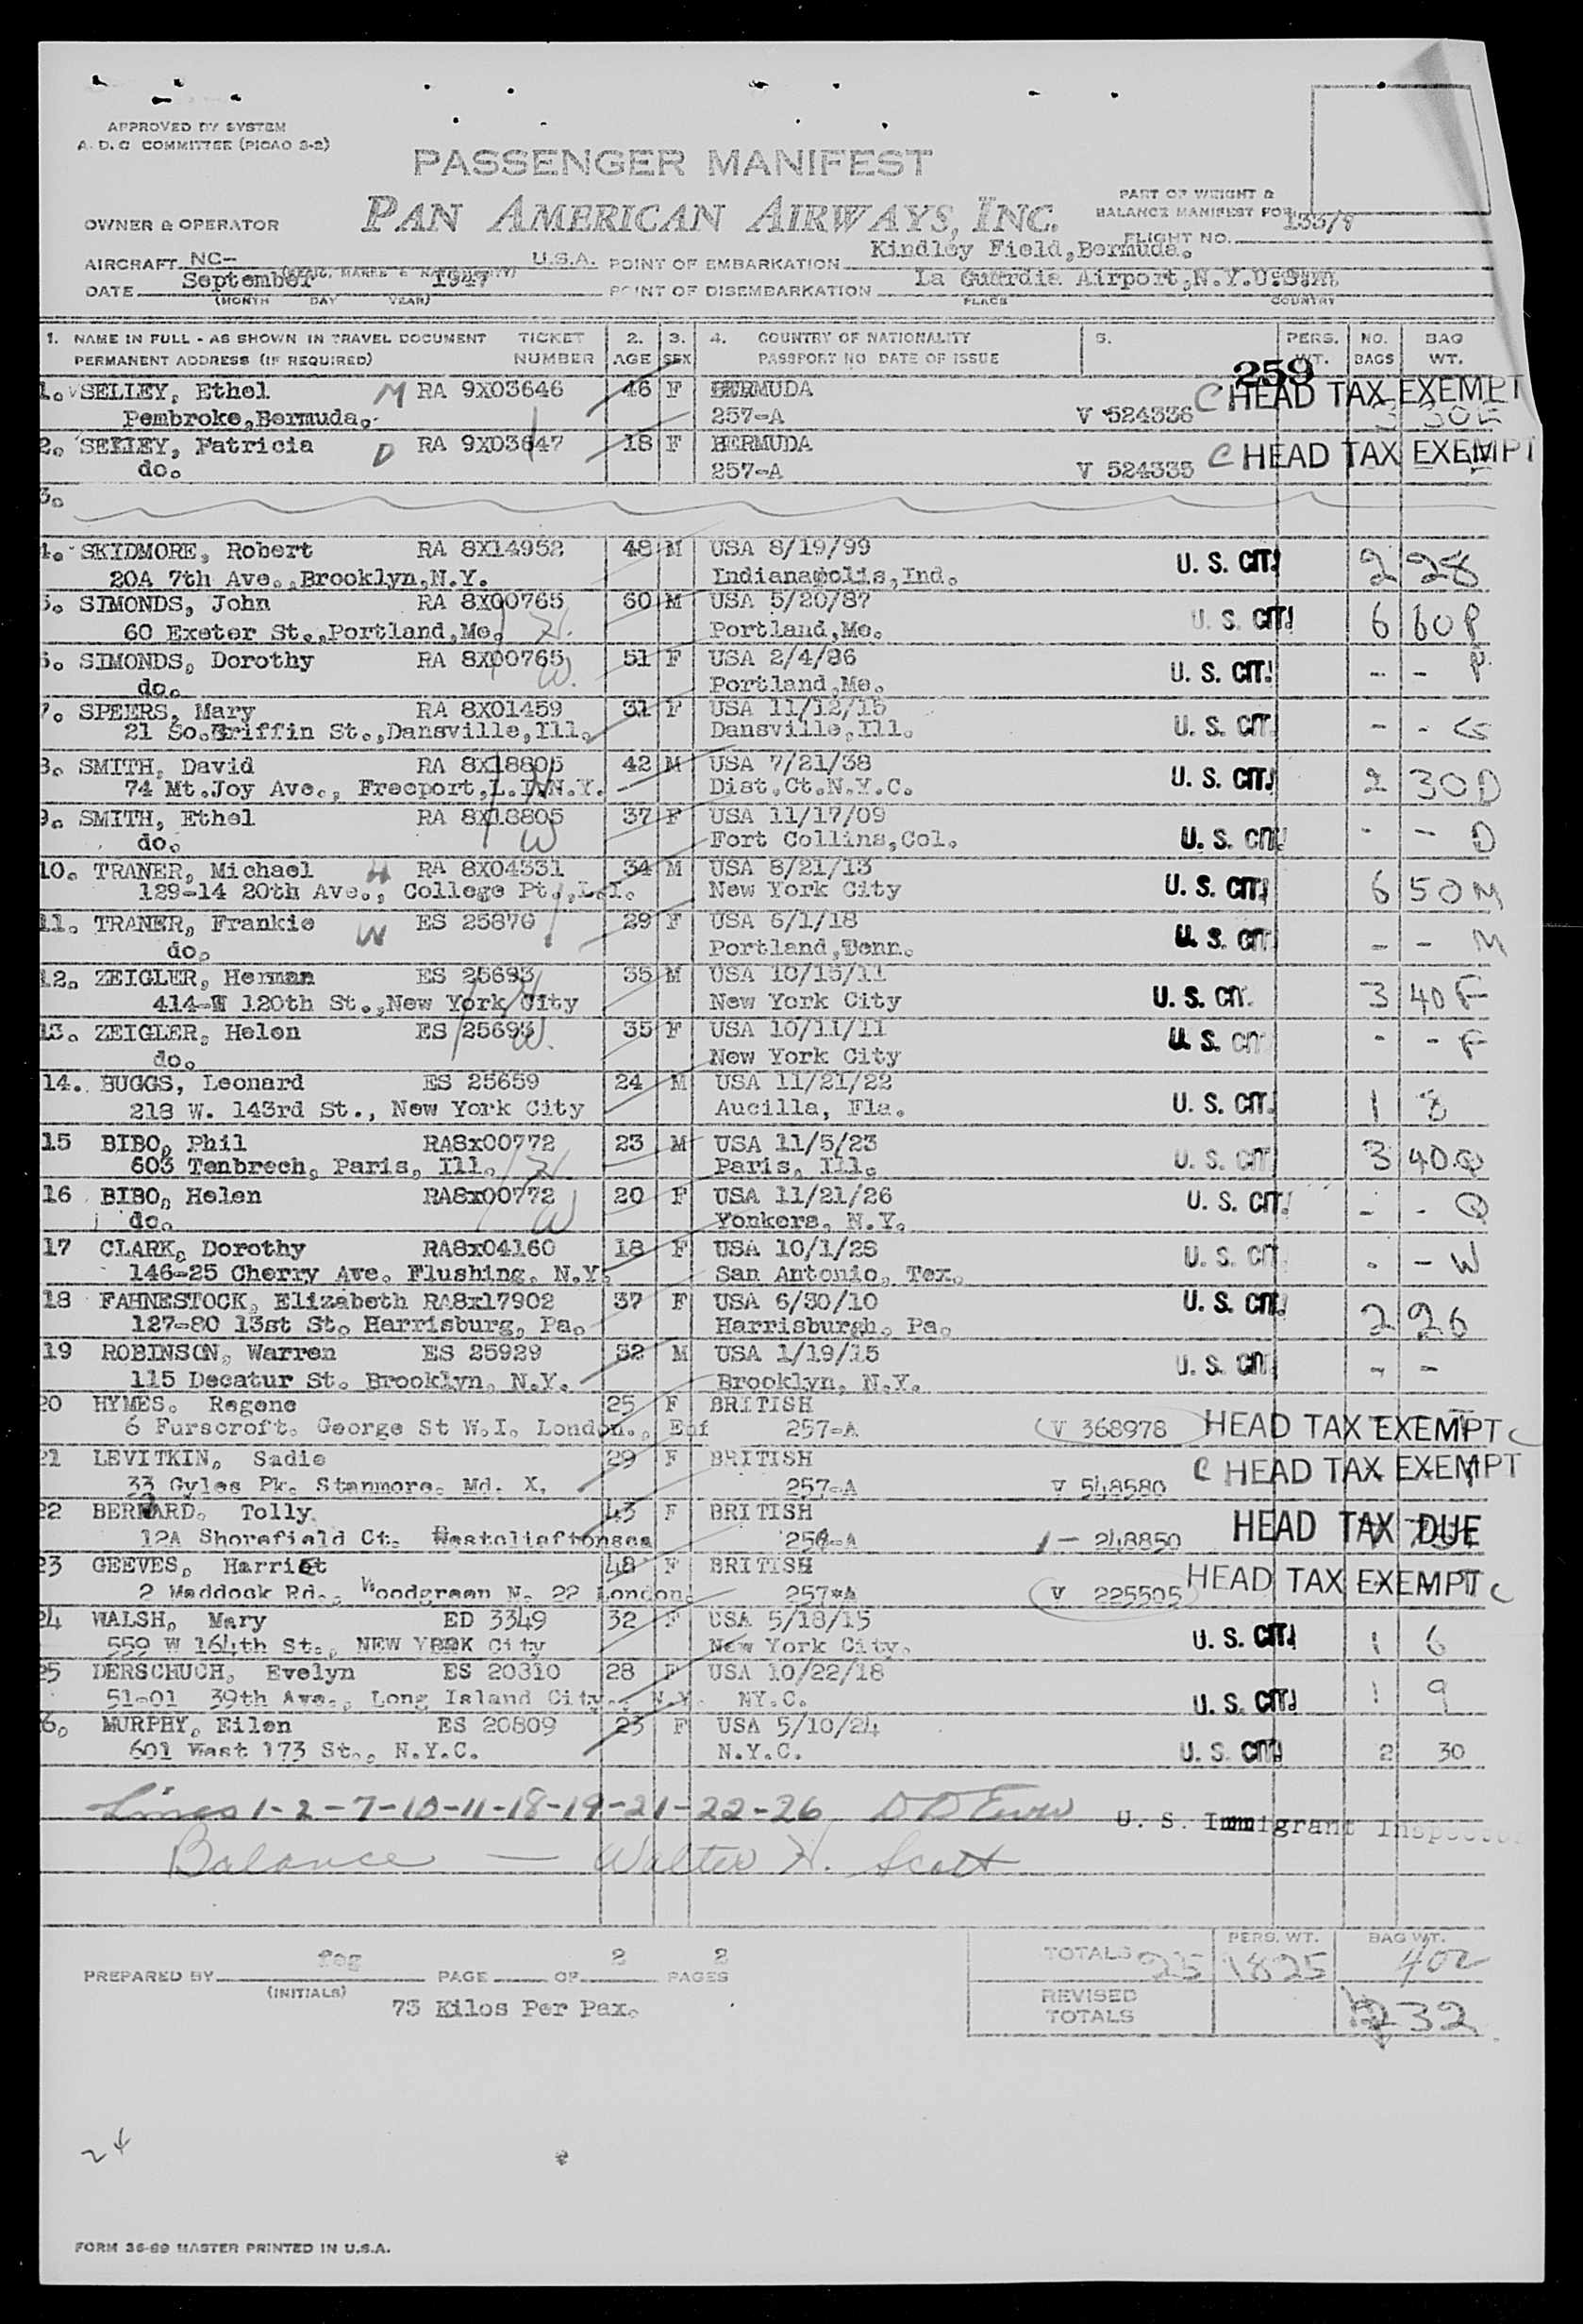 APPROVED BY SYSTEM
A. D. C COMMITTEE (PICAO 3-2)
PASSENGER MANIFEST
PAN AMERICAN AIRWAYS, INC.
PART OF WEIGHT &
BALANCE MANIFEST FOR
133/8
FLIGHT NO.
OWNER & OPERATOR
AIRCRAFT NC- U.S.A. POINT OF EMBARKATION Kindley Field,Bermuda.
DATE September 1947 POINT OF DISEMBARKATION La Guardia Airport,N.Y.
(MONTH DAY YEAR) PLACE COUNTRY
1. NAME IN FULL - AS SHOWN IN TRAVEL DOCUMENT TICKET 2. 3. 4. COUNTRY OF NATIONALITY 5. PERS. NO. BAG
PERMANENT ADDRESS (IF REQUIRED) NUMBER AGE SEX PASSPORT NO DATE OF ISSUE WT. BAGS WT.
259
1. SELLEY, Ethel M RA 9X03646 46 F BERMUDA C HEAD TAX EXEMPT
Pembroke,Bermuda. 257-A V 524336
2. SELLEY, Patricia D RA 9X03647 18 F BERMUDA C HEAD TAX EXEMPT
do. 257-A V 524335
3.
4. SKIDMORE, Robert RA 8X14952 48 M USA 8/19/99 U. S. CIT. 2 28
20A 7th Ave.,Brooklyn,N.Y. Indianapolis,Ind.
5. SIMONDS, John RA 8X00765 60 M USA 5/20/87 U. S. CIT. 6 60 P
60 Exeter St.,Portland,Me. H. Portland,Me.
6. SIMONDS, Dorothy RA 8X00765 51 F USA 2/4/86 U. S. CIT. - - P
do. W. Portland,Me.
7. SPEERS, Mary RA 8X01459 31 F USA 11/12/15 U. S. CIT. - -
21 So.Griffin St.,Dansville,Ill. Dansville,Ill.
8. SMITH, David RA 8X18805 42 M USA 7/21/38 U. S. CIT. 2 30 D
74 Mt.Joy Ave., Freeport,L.I.N.Y. Dist.Ct.N.Y.C.
9. SMITH, Ethel RA 8X18805 37 F USA 11/17/09 U. S. CIT. - - D
do. W Fort Collins,Col.
10. TRANER, Michael H RA 8X04331 34 M USA 8/21/13 U. S. CIT. 6 50 M
129-14 20th Ave., College Pt.,L.I. New York City
11. TRANER, Frankie W ES 25870 29 F USA 6/1/18 U. S. CIT. - - M
do. Portland,Tenn.
12. ZEIGLER, Herman ES 25693 35 M USA 10/15/11 U. S. CIT. 3 40 F
414-W 120th St.,New York City New York City
13. ZEIGLER, Helen ES 25693 W. 35 F USA 10/11/11 U. S. CIT. - - F
do. New York City
14. BUGGS, Leonard ES 25659 24 M USA 11/21/22 U. S. CIT. 1 8
218 W. 143rd St., New York City Aucilla, Fla.
15 BIBO, Phil RA8x00772 23 M USA 11/5/23 U. S. CIT 3 40 Q
603 Tenbrech, Paris, Ill. H Paris, Ill.
16 BIBO, Helen RA8x00772 20 F USA 11/21/26 U. S. CIT. - - Q
do. W Yonkers, N.Y.
17 CLARK, Dorothy RA8x04160 18 F USA 10/1/28 U. S. CIT - - W
146-25 Cherry Ave. Flushing, N.Y. San Antonio, Tex.
18 FAHNESTOCK, Elizabeth RA8x17902 37 F USA 6/30/10 U. S. CIT. 2 26
127-80 13st St. Harrisburg, Pa. Harrisburgh, Pa.
19 ROBINSON, Warren ES 25929 32 M USA 1/19/15 U. S. CIT. - -
115 Decatur St. Brooklyn, N.Y. Brooklyn, N.Y.
20 HYMES. Regene 25 F BRITISH
6 Furscroft. George St W.I. London., Enf 257-A V 368978 HEAD TAX EXEMPT C
21 LEVITKIN, Sadie 29 F BRITISH C HEAD TAX EXEMPT
33 Gyles Pk. Stanmore. Md. X. 257-A V 548580
22 BERNARD. Tolly. 43 F BRITISH HEAD TAX DUE
12A Shorefield Ct. Westclieftonsea 1 - 248850
23 GEEVES, Harriet 48 F BRITISH HEAD TAX EXEMPT C
2 Maddock Rd., Woodgreen N. 22 London. 257*A V 225505
24 WALSH, Mary ED 3349 32 F USA 5/18/15 U. S. CIT. 1 6
559 W 164th St., NEW YORK City New York City.
25 DERSCHUCH, Evelyn ES 20310 28 F USA 10/22/18 1 9
51-01 39th Ave., Long Island City., N.Y. NY.C. U. S. CIT.
6. MURPHY, Eilen ES 20809 23 F USA 5/10/24
601 West 173 St., N.Y.C. N.Y.C. U. S. CIT. 2 30
Lines 1-2-7-10-11-18-19-21-22-26 U. S. Immigrant Inspector
Balance - Walter H. Scott
PREPARED BY feg PAGE 2 OF 2 PAGES
(INITIALS)
73 Kilos Per Pax.
PERS. WT. BAG WT.
TOTALS 25 1825 402
REVISED
TOTALS 232
24
FORM 36-89 MASTER PRINTED IN U.S.A.